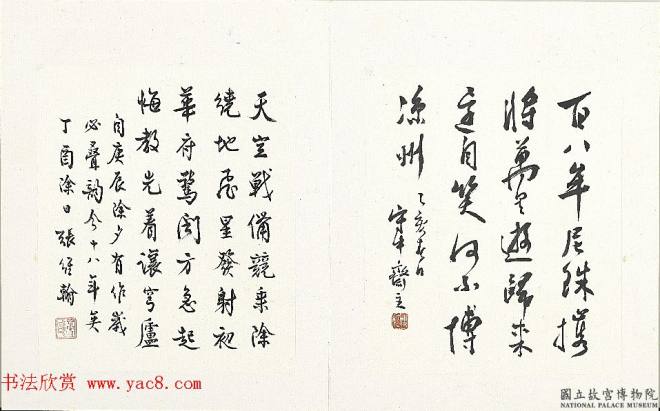 百八牟尼珠
將萬里遊歸來
還自笑何不博
涼州
乙亥春日
天空戰備競乘除
繞地飛星發射初
華府驚聞方急起
悔教先著讓穹廬
自庚辰除夕有作歲
必疊韵今十八年矣
丁酉除日 張維翰
书法欣赏 www.yac8.com
國立故宮博物院
NATIONAL PALACE MUSEUM